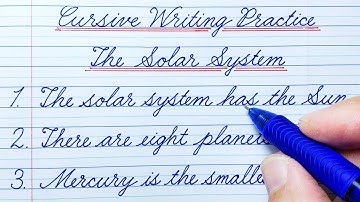 Cursive Writing Practice
The Solar System
1. The solar system has the Sun
2. There are eight planets
3. Mercury is the smalle